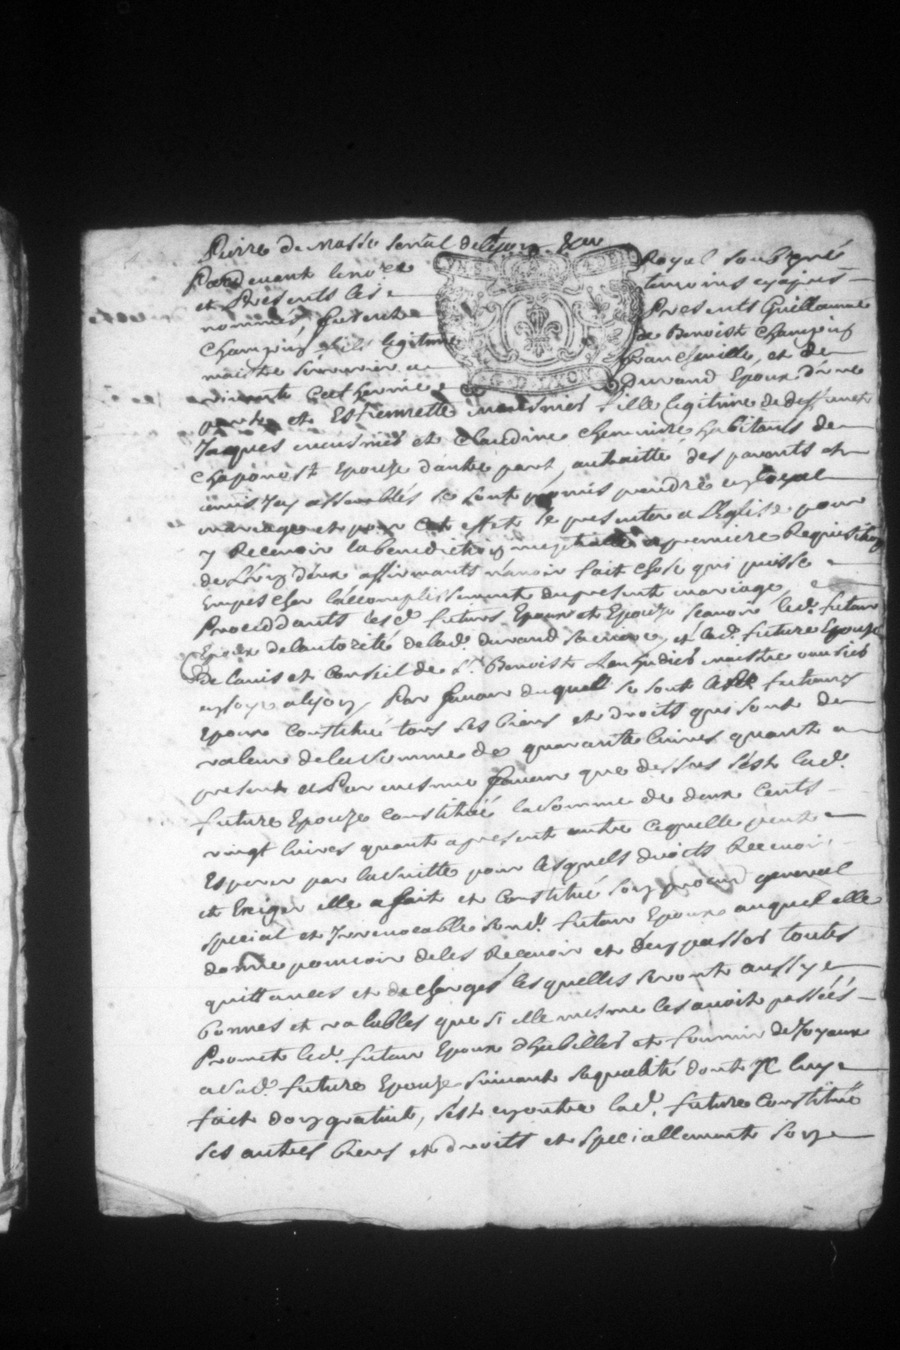 Pierre de masso senéal de Lyon
Pardevant le no.re Royal soubsigné
et Presents les temoins cy apres
nommés, furent Presents Guillaume
Champin fils legitime de Benoist Champin
maistre serrurier a francheville, et de
durand Epoux d'une
part, et Estiennette meusnier fille legitime de deffunct
Jacques meusnier et Claudine habitants de
chaponost Epouze d'autre part, authorité des parents et
amis Icy assemblés se sont promis prendre en loyal
mariage et pour cet effet se presenter a L'Eglise pour
y Recevoir la benediction nuptialle a premiere Requisition
de L'un d'eux affirmants n'avoir fait chose qui puisse
Empescher l'accomplissement du present mariage
Proceddants lesd. futurs Epoux et Epouze scavoir led. futur
Epoux de l'autorité de lad. durand sa mere, et lad. future Epouze
de l'avis et Conseil de S.r Benoist maistre
en soye a lyon, Par faveur duquel se sont lesd. futurs
Epoux Constitué tous ses biens et droits qui sont de
valeur de la somme de quarante livres quant a
present et Par mesme faveur que dessus s'est lad.
future Epouze constituée la somme de deux cents
vingt livres quant a present outre ce quelle peut
Esperer par la suitte pour lesquels droits Recevoir
et Exiger elle a fait et Constitué son procur general
special et Irrevocable sond. futur Epoux auquel elle
donne pouvoir de les Recevoir et d'en passer toutes
quittances et décharges lesquelles seront aussy
bonnes et valables que si elle mesme les avoit passées
Promet led. futur Epoux d'habiller et fournir de Joyaux
a sad. future Epouze suivant sa qualité dont Il luy
fait don gratuit, s'est en outre lad. future Constitué
ses autres biens et droits et speciallement son